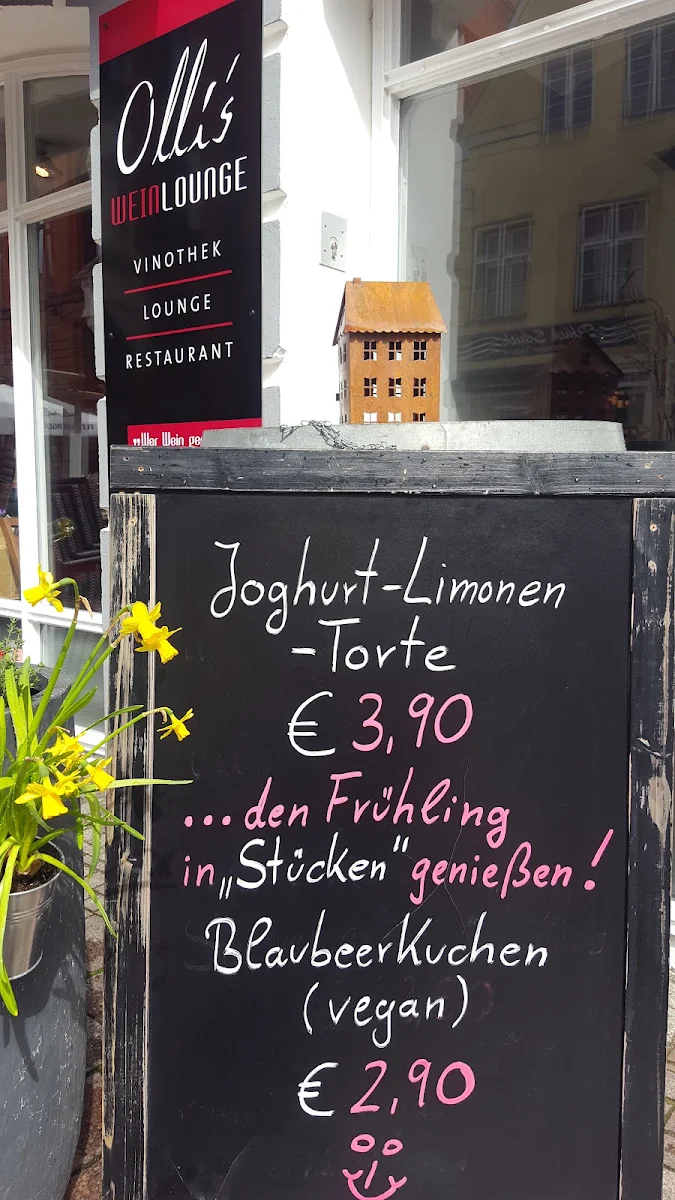 Olli's
WEINLOUNGE
VINOTHEK
LOUNGE
RESTAURANT
"Wer Wein
Joghurt-Limonen
-Torte
€ 3,90
...den Frühling
in „Stücken" genießen!
Blaubeerkuchen
(vegan)
€ 2,90